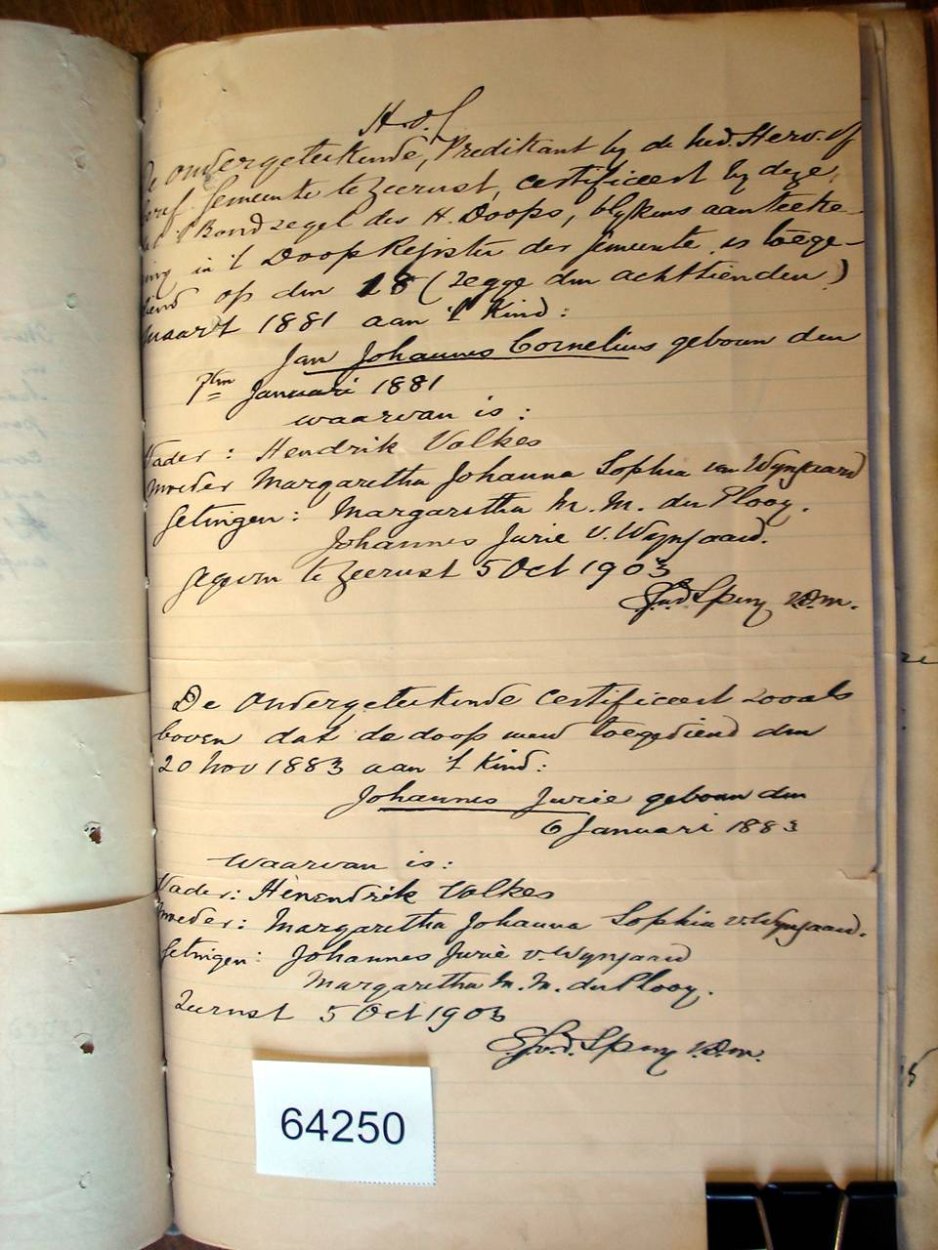 H. v. S.
De ondergeteekende, Predikant by de Ned. Herv. of
Geref. Gemeente te Zeerust, certificeert by deze,
dat 't Bondzegel des H. Doops, blykens aanteeke-
ning in 't Doop Register der Gemeente is toege-
diend op den 18 (zegge den achttienden)
Maart 1881 aan 't Kind:
Jan Johannes Cornelius geboren den
7den Januari 1881
waarvan is:
Vader: Hendrik Valkes
Moeder Margaretha Johanna Sophia van Wyngaard
Getuigen: Margaretha M. M. du Plooy.
Johannes Jurie v. Wyngaard.
Gegeven te Zeerust 5 Oct 1903
V.D.M.
De Ondergeteekende Certificeert zooals
boven dat de doop werd toegediend den
20 Nov 1883 aan 't Kind:
Johannes Jurie geboren den
6 Januari 1883
Waarvan is:
Vader: Henendrik Valkes
Moeder: Margaretha Johanna Sophia v. Wyngaard.
Getuigen: Johannes Jurie v Wyngaard
Margaretha M. M. du Plooy.
Zeerust 5 Oct 1903
V.D.M.
64250